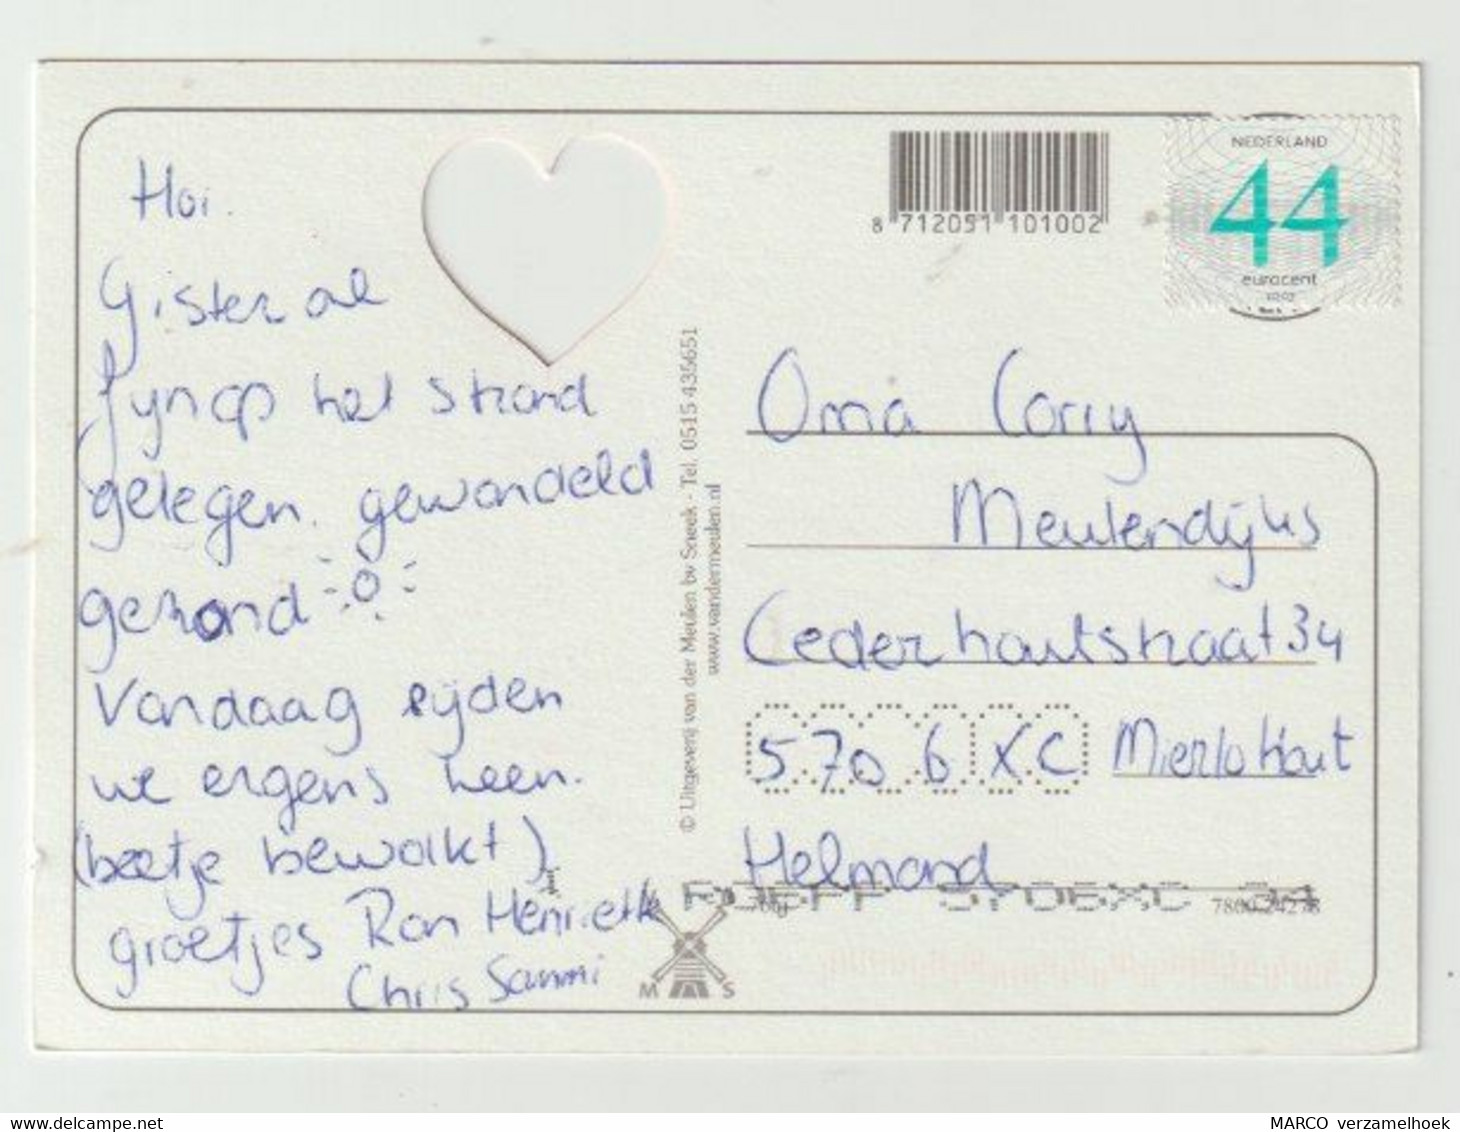 Hoi.
Gister al
fijn op het strand
gelegen. gewandeld
gezond
Vandaag rijden
we ergens heen.
(beetje bewolkt)
groetjes Ron Henriette
Chris Sammi
© Uitgeverij van der Meulen bv Sneek - Tel. 0515 435651
www.vandermeulen.nl
8 712051 101002
NEDERLAND
44
eurocent
Oma Corry
Meulendijks
Cederhoutstraat 34
5706 XC Mierlo Hout
Helmond
5706XC 34
M S
MARCO verzamelhoek